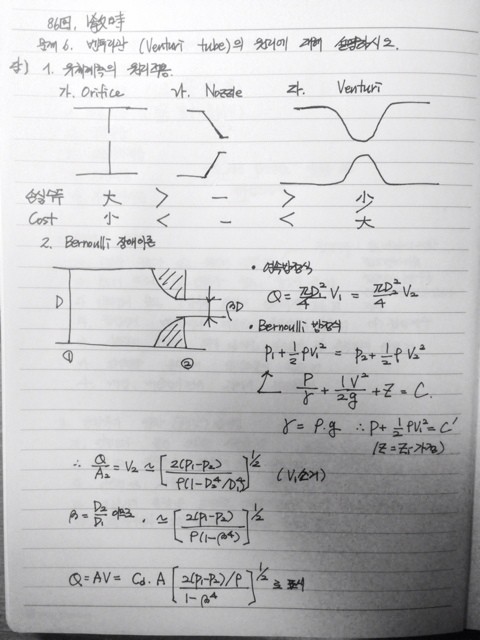 86회,
문제 6. 벤투리관 (Venturi tube)의 원리에 대해 설명하시오.
답) 1. 유체계측의 원리적용.
가. Orifice 나. Nozzle 다. Venturi
손실수두 大 > - > 小
Cost 小 < - < 大
2. Bernoulli 장애이론
D βD ① ②
• 연속방정식
Q = πD₁²/4 V₁ = πD₂²/4 V₂
• Bernoulli 방정식
P₁ + 1/2 ρV₁² = P₂ + 1/2 ρV₂²
P/γ + 1V²/2g + Z = C.
γ = ρ.g ∴ P + 1/2 ρV₁² = C'
(Z = Z₁ 가정)
∴ Q/A₂ = V₂ ≃ [2(P₁-P₂) / ρ(1-D₂⁴/D₁⁴)]^1/2 (V₁소거)
β = D₂/D₁ 이므로, ≃ [2(P₁-P₂) / ρ(1-β⁴)]^1/2
Q = AV = Cd. A [2(P₁-P₂)/ρ / 1-β⁴]^1/2 로 표시